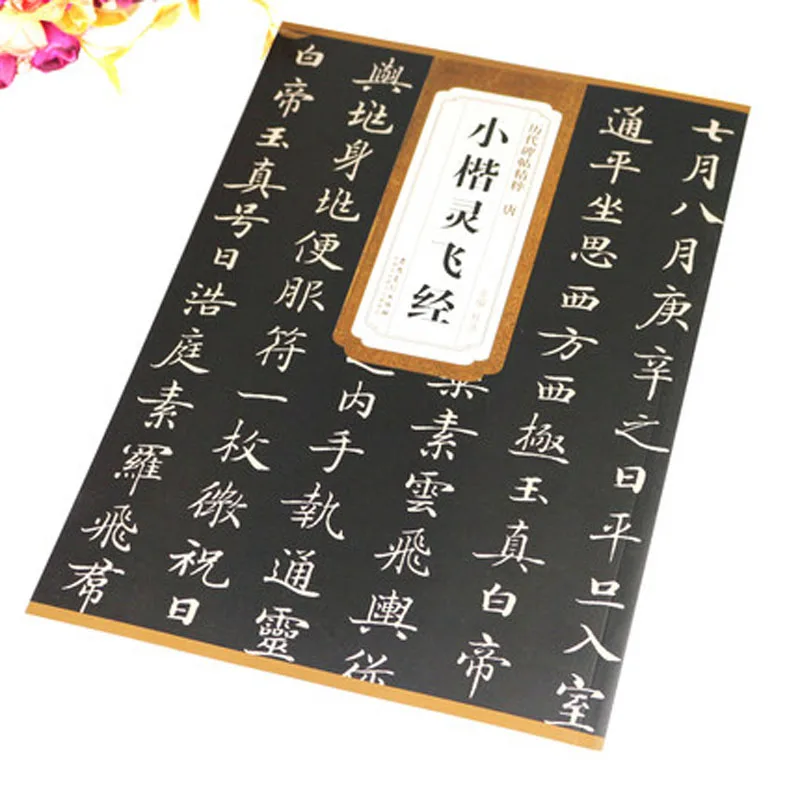 七月八月庚辛之日平旦入室
通平坐思西方西極玉真白帝
乘素雲飛輿從
历代碑帖精粹 唐
小楷灵飞经
之内手執通靈
與垗身垗便服符一枚微祝曰
白帝玉真号曰浩庭素羅飛君